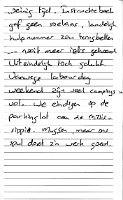 weinig tijd. Instructieboek
gaf geen soelaas, landelijk
hulpnummer zou terugbellen
... nooit meer iets gehoord
Uiteindelijk toch gelukt.
Vanwege labourday
weekend zijn veel campings
vol. We eindigen op de
parkinglot aan de
. Mijlen maar ons
koel doet z'n werk goed.